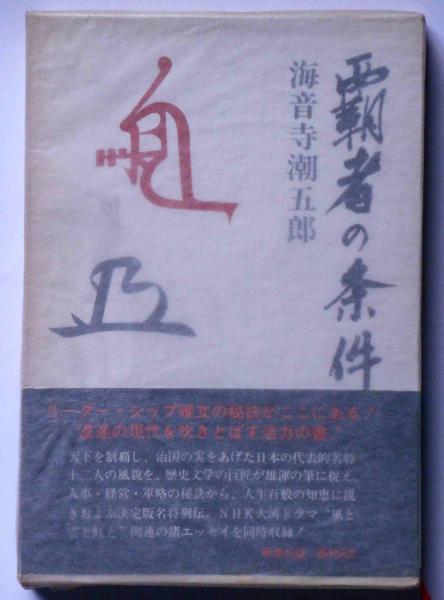 覇者の条件
海音寺潮五郎
リーダー・シップ確立の秘訣がここにある!
混迷の現代を吹きとばす活力の書!
天下を制覇し、治国の実をあげた日本の代表的名将
十二人の風貌を、歴史文学の巨匠が雄渾の筆に捉え、
人事・経営・軍略の秘訣から、人生百般の知恵に説
きおよぶ決定版名将列伝。NHK大河ドラマ“風と
雲と虹と”関連の諸エッセイを同時収録!